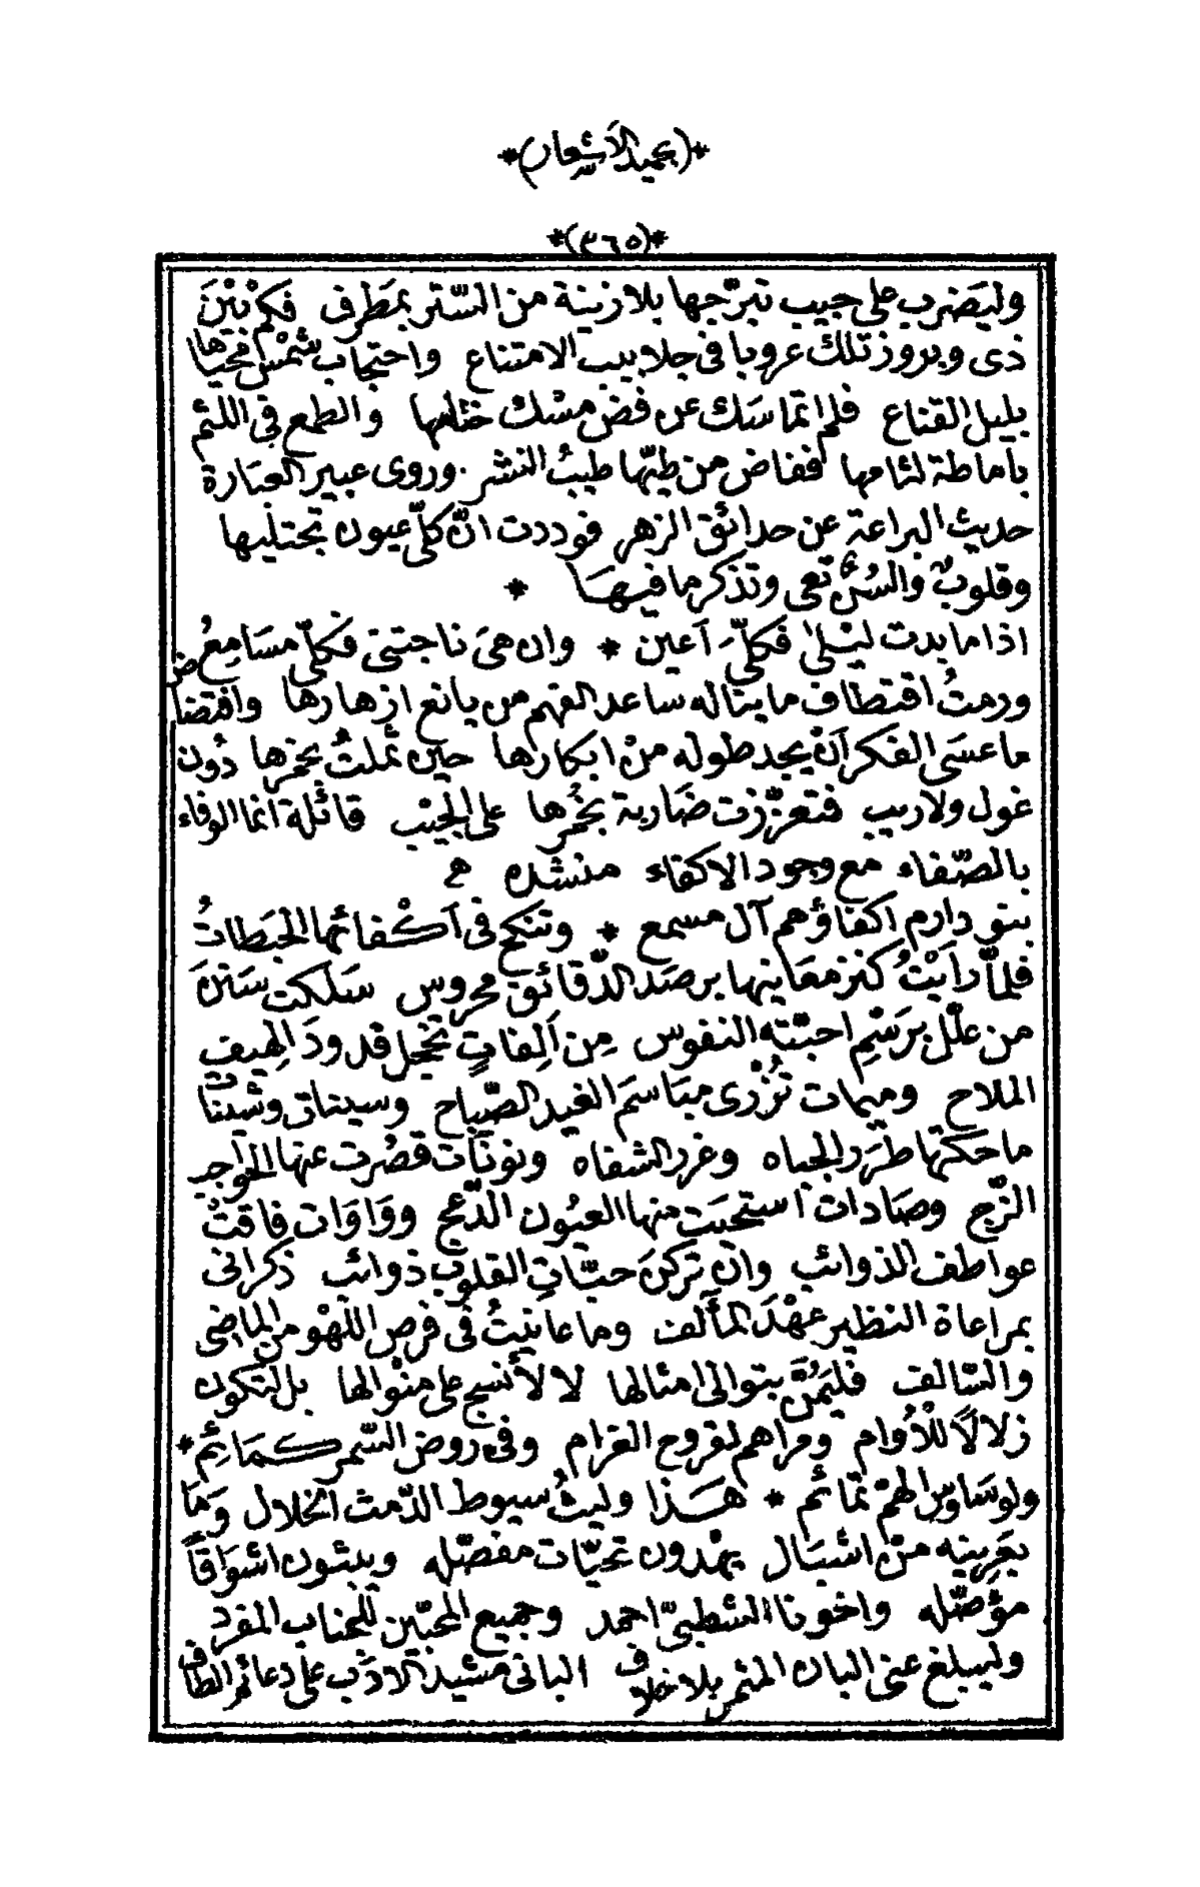 *(بحميد الأشعار)*
*(٣٦٥)*
وليَضرب على جيب تبرّجها بلا زينة من السّتر بمَطرف فكم بَيْنَ
ذى وبروز تلك عروبا فى جلابيب الامتناع واحتجاب شمْس محيّاها
بليل القناع فلم اتماسَك عن فض مسْك ختامها والطمع فى اللثم
باماطة لثامها ففاض من طيّها طيبُ النشر وروى عبير العبَارة
حديث البراعة عن حدائق الزهر فوددت انّ كلّى عيون تجتليها
وقلوبٌ والسُنٌ تعى وتذكر ما فيهَا *
اذا ما بدت ليْلىٰ فكلّىَ اَعين * وان هىَ ناجتنى فكلّى مسَامِعُ
ورمتُ اقتطاف ما يناله ساعد الفهم من يانع ازهارها وافتضاض
ما عسَى الفكر اَنْ يجد طوله منْ ابكارها حين ثملتُ بخمرها دُون
غول ولا ريب فتعزّزت ضَاربة بخُمرها على الجَيْب قائلة انما الوفاء
بالصّفاء مع وجود الاكفاء منشده
بنو دارم اكفاؤهم آل مسمع * وتنكح فى اَكْفائها الحَبَطاتُ
فلمّا رأَيْتُ كنز معَانيها برصَد الدّقائق محروس سَلكت سَنَنَ
من علّل برَسْمِ احبّته النفوس مِن اَلِفاتٍ تخجل قدودَ الهِيف
الملاح وميمات تُزْرى مبَاسَم الغيد الصّباح وسيناتٍ وشيناتٍ
ما حَكتها طُرَر الجباه وغرر الشفاه ونونات قصُرت عنها الحَواجِر
الزّج وصَادات استحيَت منها العيُون الدّعج ووَاوَات فاقتْ
عواطف الذوائب واِنْ تركنَ حبّاتِ القلوب ذوائب ذكرانى
بمراعاة النظير عهْدَ المأَلف وما عانيتُ فى فرص اللّهْو من الماضِى
والسّالف فليَمُنَّ بتوالى امثالها لا لأنسج على منْوالها بل لتكون
زلالاً للْأُوام ومراهم لقروح الغرام وفى روض السّمر كمَائِم *
ولوسَاوِس الهمّ تمائم * هَذا وليثُ سيوط الدّمث الخلال وَمَا
بعَرِينه منْ اشبَال يهْدون تحيّات مفصّله ويبثون اشوَاقاً
مؤصّله واخونا الشطبىّ احمد وجميع المحبّين للجناب المفرد
وليبلغ عنى البان المثمر بلا خلاف البانى مشيد الادَب على دعائم الطاف